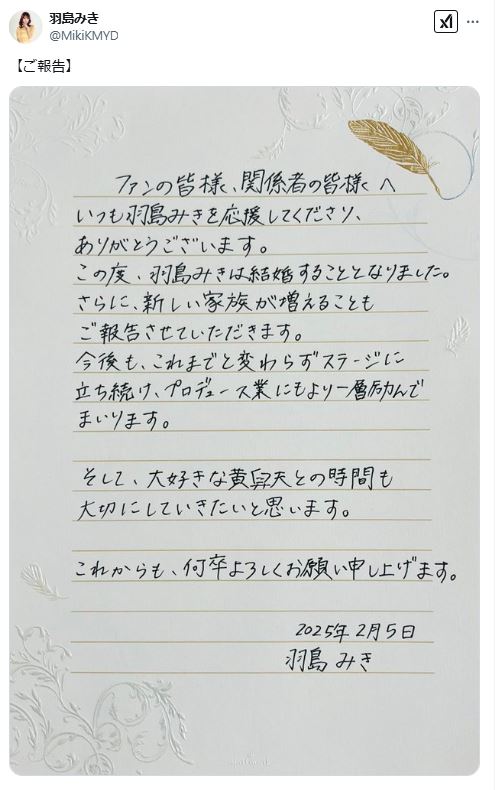 羽島みき
@MikiKMYD
【ご報告】
ファンの皆様、関係者の皆様へ
いつも羽島みきを応援してくださり、
ありがとうございます。
この度、羽島みきは結婚することとなりました。
さらに、新しい家族が増えることも
ご報告させていただきます。
今後も、これまでと変わらずステージに
立ち続け、プロデュース業にもより一層励んで
まいります。
そして、大好きな黄昇天との時間も
大切にしていきたいと思います。
これからも、何卒よろしくお願い申し上げます。
2025年2月5日
羽島みき